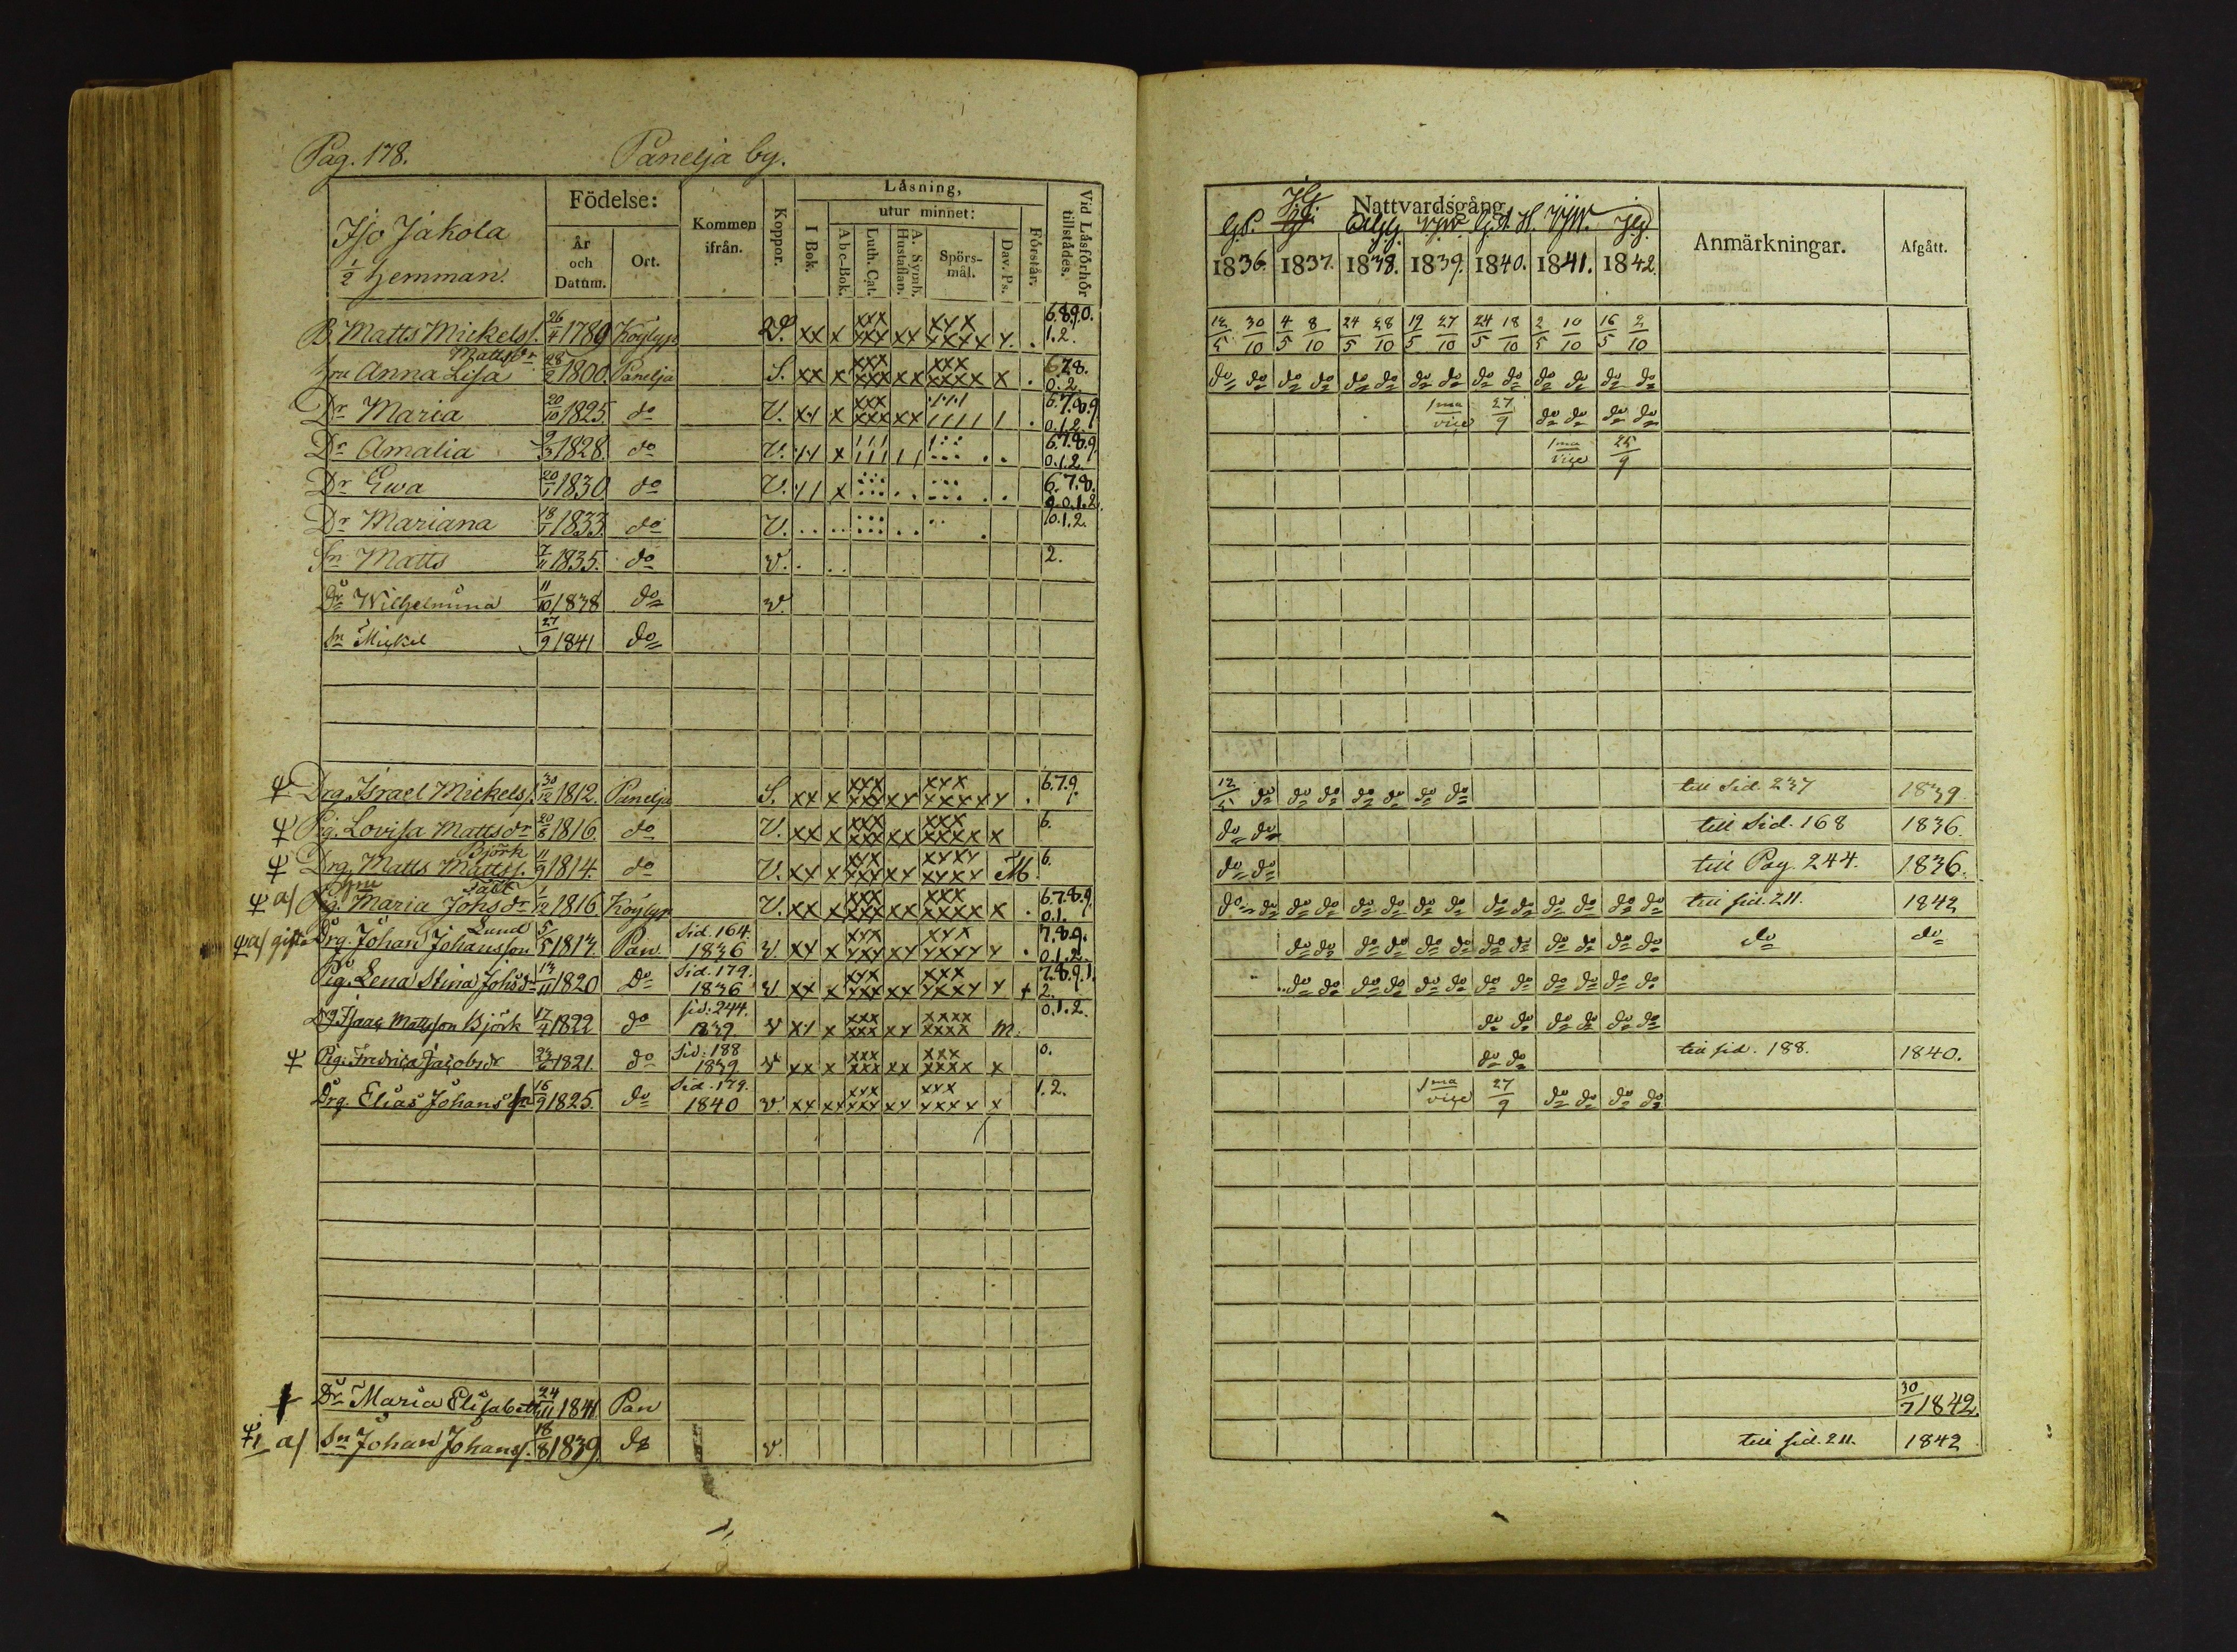 Pag. 178. Panelja by.
Iso Jakola
1/2 hemman.
Födelse:
År och Datum.
Ort.
Kommen ifrån.
Koppor.
Läsning,
I Bok.
utur minnet:
Abc-Bok.
Luth. Cat.
A. Symb. Hustaflan.
Spörs-mål.
Dav. Ps.
Förstår.
Vid Läsförhör tillstädes.
Nattvardsgång
1836. 1837. 1838. 1839. 1840. 1841. 1842.
Anmärkningar.
Afgått.
B. Matts Mickelss. 26/4 1789 Köylyp xx x xxx xxx xx xxx xxxx x. . 6.8.9.0. 1.2. 12/5 30/10 4/5 8/10 24/5 28/10 19/5 27/10 24/5 18/10 2/5 10/10 16/5 2/10
hru Anna Lisa Mattsdr 28/2 1800. Panelja S. xx x xxx xxx xx xxx xxxx x . 6.7.8. 0.2. do do do do do do do do do do do do do do
Dr Maria 20/10 1825. do V. xx x xxx xxx xx . 6.7.8.9 0.1.2. 1ma vice 27/9 do do do do
Dr Amalia 9/3 1828. do V. x 6.7.8.9. 0.1.2. 1ma vice 25/9
Dr Ewa 20/1 1830 do V. x 6.7.8. 9.0.1.2.
Dr Mariana 18/1 1833. do V. 0.1.2.
Sn Matts 1835. do v. 2.
Dr Wilhelmina 11/10 1838 do v.
Sn Mickel 27/9 1841 do
Drg. Israel Mickelss. 30/12 1812. Panelja S. xx x xxx xxx xx xxx xxxxx x . 6.7.9. 12/5 do do do do do do do till Sid. 237 1839.
Pig. Lovisa Mattsdr 20/6 1816. do V. xx x xxx xxx xx xxx xxxxx x 6. do do till Sid. 168 1836.
Drg. Matts Mattss. Björk 11/9 1814. do V. xx x xxx xxx xx xxxx xxxx M. 6. do do till Pag. 244. 1836.
a/ Pig. Maria Johsdr 1/12 1816. Köylyp V. xx x xxx xxx xx xxx xxxx x . 6.7.8.9. 0.1. do do do do do do do do do do do do do do till sid. 211. 1842
a/ gift Drg. Johan Johansson Lund 5/5 1813. Pan. Sid. 164. 1836 v. xx x xxx xxx xx xxx xxxx x . 7.8.9. 0.1.2. do do do do do do do do do do do do do do
Pig. Lena Stina Johsdr 13/11 1820 do Sid. 179. 1836 v xx x xxx xxx xx xxx xxxx x x 7.8.9.1. 2. do do do do do do do do do do do do
Drg Isaac Mattsson Björk 17/4 1822 do sid: 244. 1839 v xx x xxx xxx xx xxxx xxxx m. 0.1.2. do do do do do do
Pig. Fredrica Jacobsdr 1821. do Sid: 188 1839 v xx x xxx xxx xx xxx xxxx x 0. do do till sid. 188. 1840.
Drg. Elias Johans sn 16/9 1825. do Sid. 179. 1840 v. xx xx xxx xxx xx xxx xxxx x 1.2. 1ma vice 27/9 do do do do
Dr Maria Elisabeth 24/11 1841 Pan 30/7 1842.
a/ Sn Johan Johanss. 18/8 1839 do v. till sid. 211. 1842